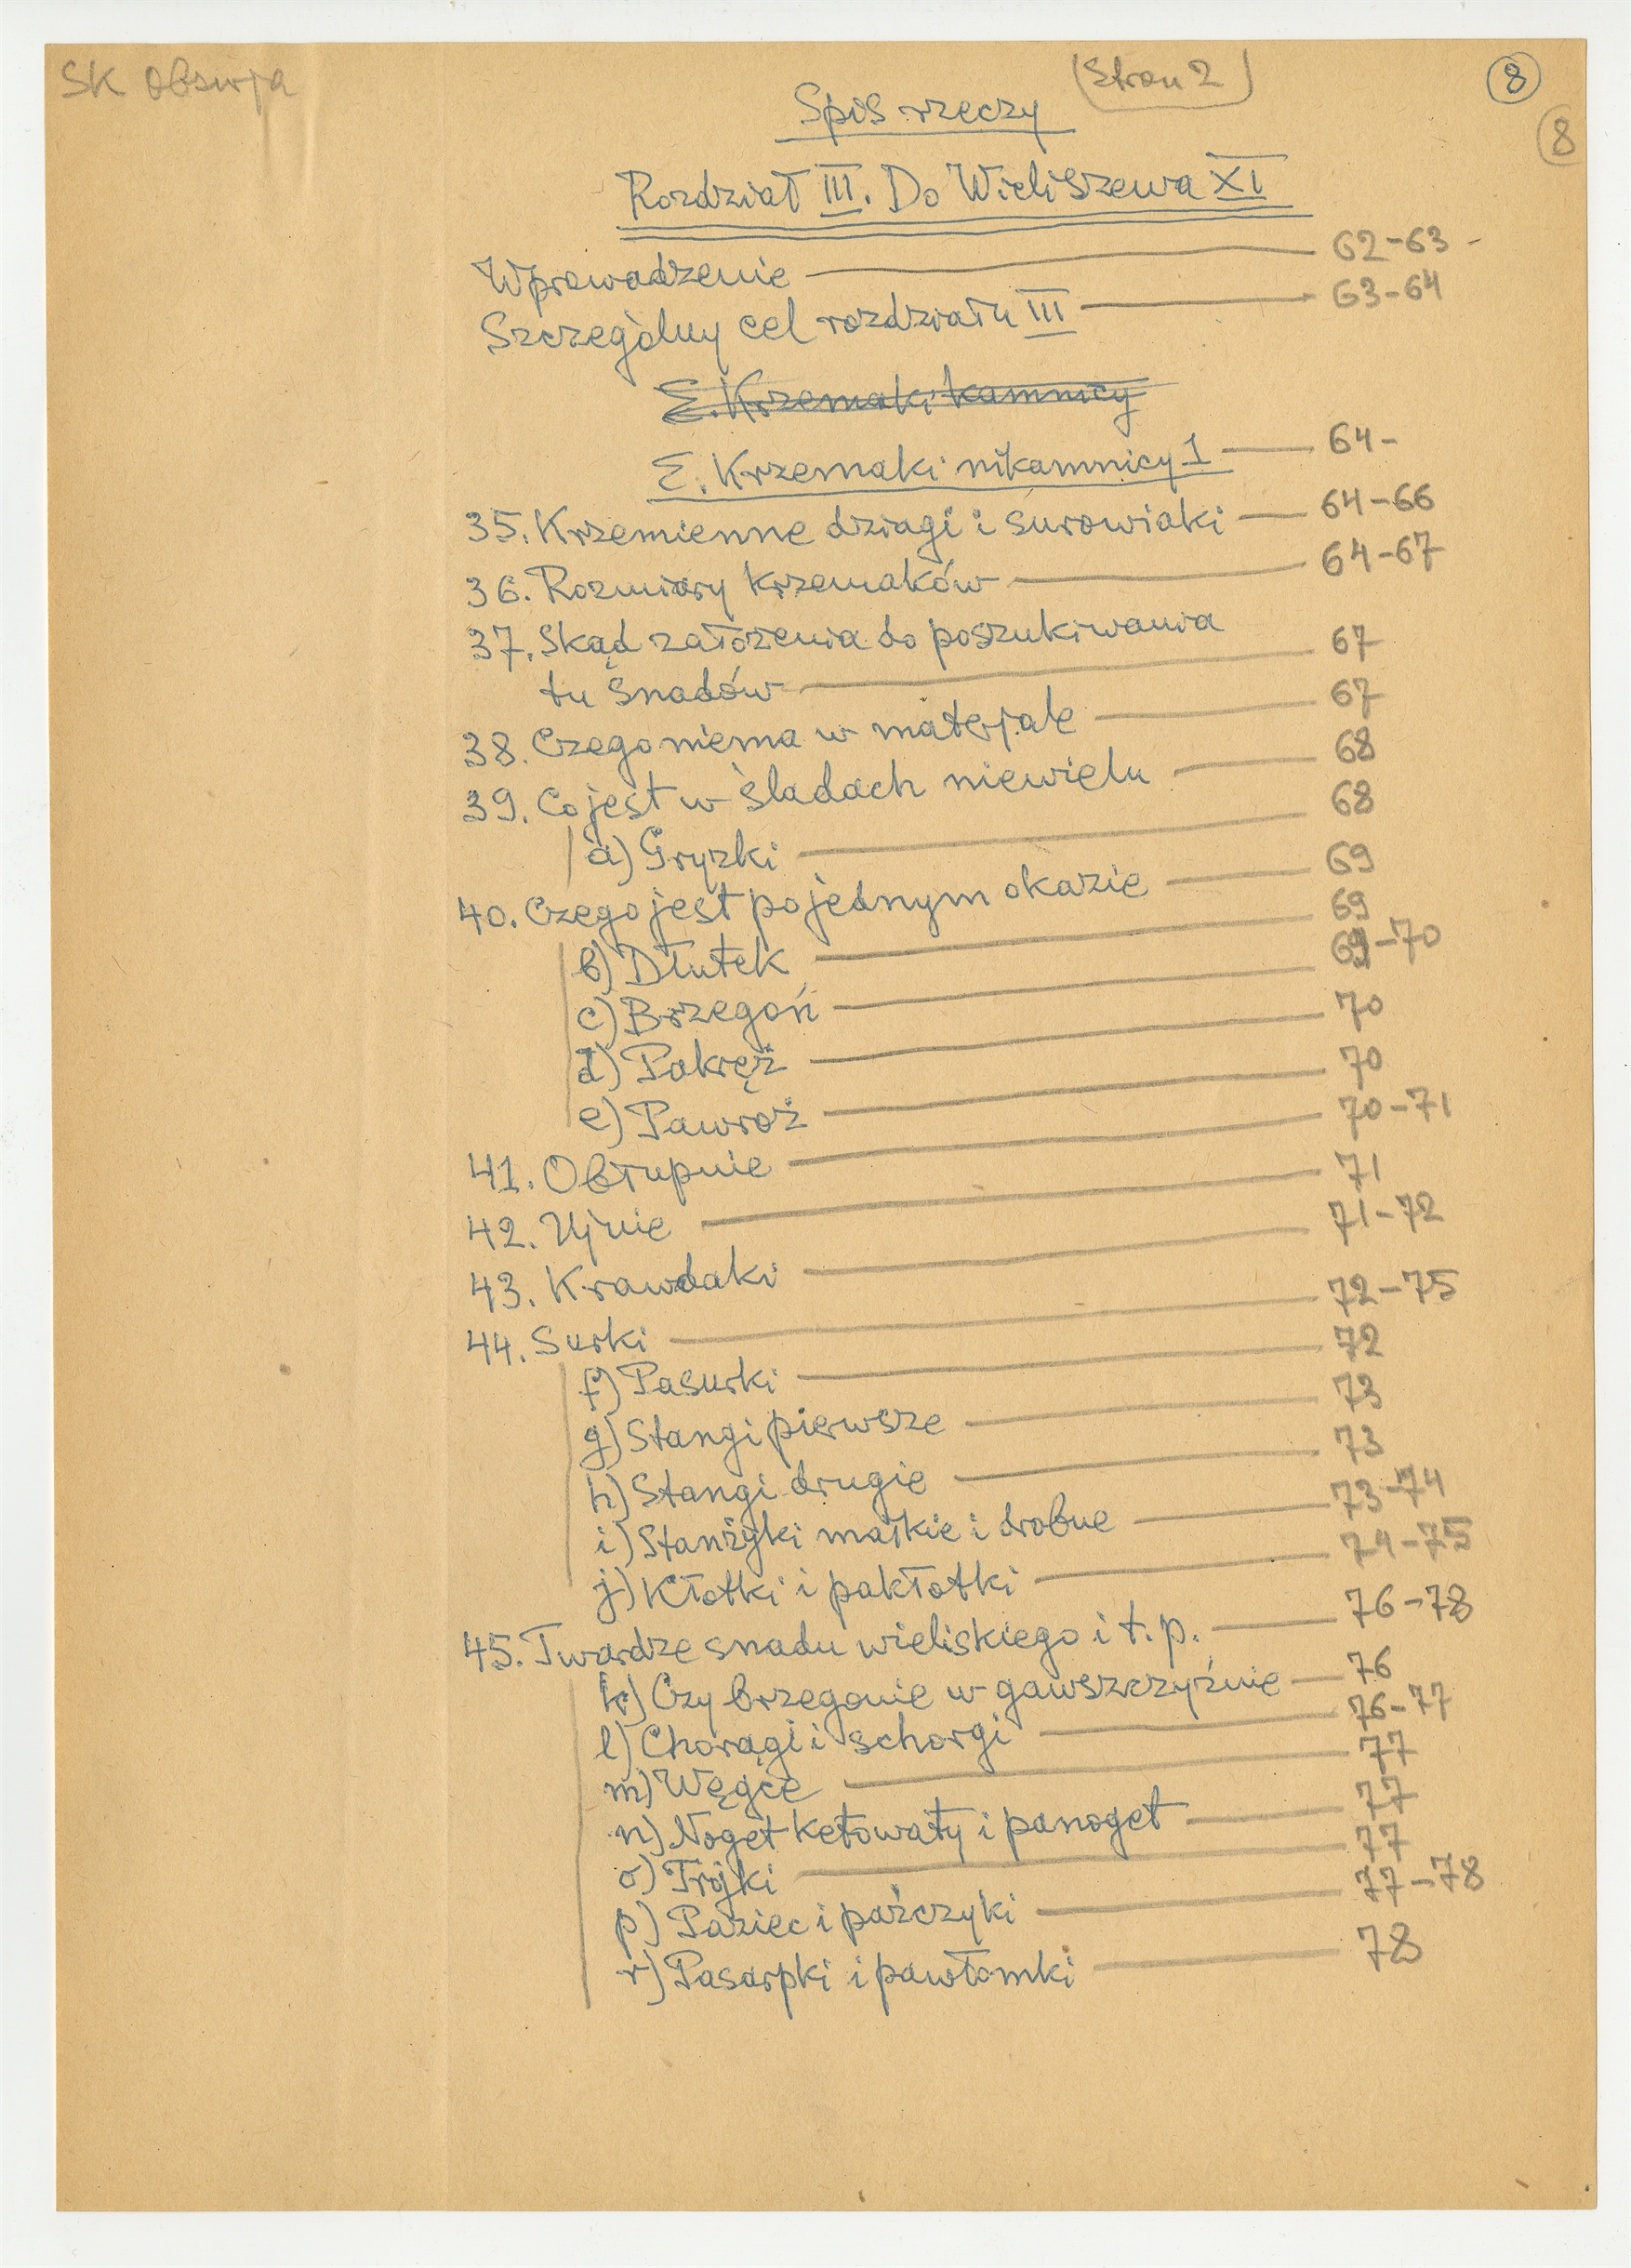 SK Obserja
(Stron 2)
8
8
Spis rzeczy
Rozdział III. Do Wieliszewa XI
Wprowadzenie — 62-63 -
Szczególny cel rozdziału III — 63-64
E. Krzemaki kamnicy
E. Krzemaki nikamnicy 1 — 64-
35. Krzemienne dziagi i surowiaki — 64-66
36. Rozmiary krzemaków — 64-67
37. Skąd założenia do poszukiwania
tu śnadów — 67
38. Czego niema w materjale — 67
39. Co jest w śladach niewielu — 68
a) Gryzki — 68
40. Czego jest po jednym okazie — 69
b) Dłutek — 69
c) Brzegoń — 69-70
d) Pakręż — 70
e) Pawroż — 70
41. Obłupnie — 70-71
42. Ujnie — 71
43. Krawdaki — 71-72
44. Surki — 72-75
f) Pasurki — 72
g) Stangi pierwsze — 73
h) Stangi drugie — 73
i) Stanżyki małkie i drobne — 73-74
j) Kłotki i pakłotki — 74-75
45. Twardze snadu wieliskiego i t. p. — 76-78
k) Czy brzegonie w gawszczyźnie — 76
l) Chorągi i schorgi — 76-77
m) Węgce — 77
n) Noget ketowaty i panoget — 77
o) Trójki — 77
p) Paziec i paźczyki — 77-78
r) Pasarpki i pawłomki — 78